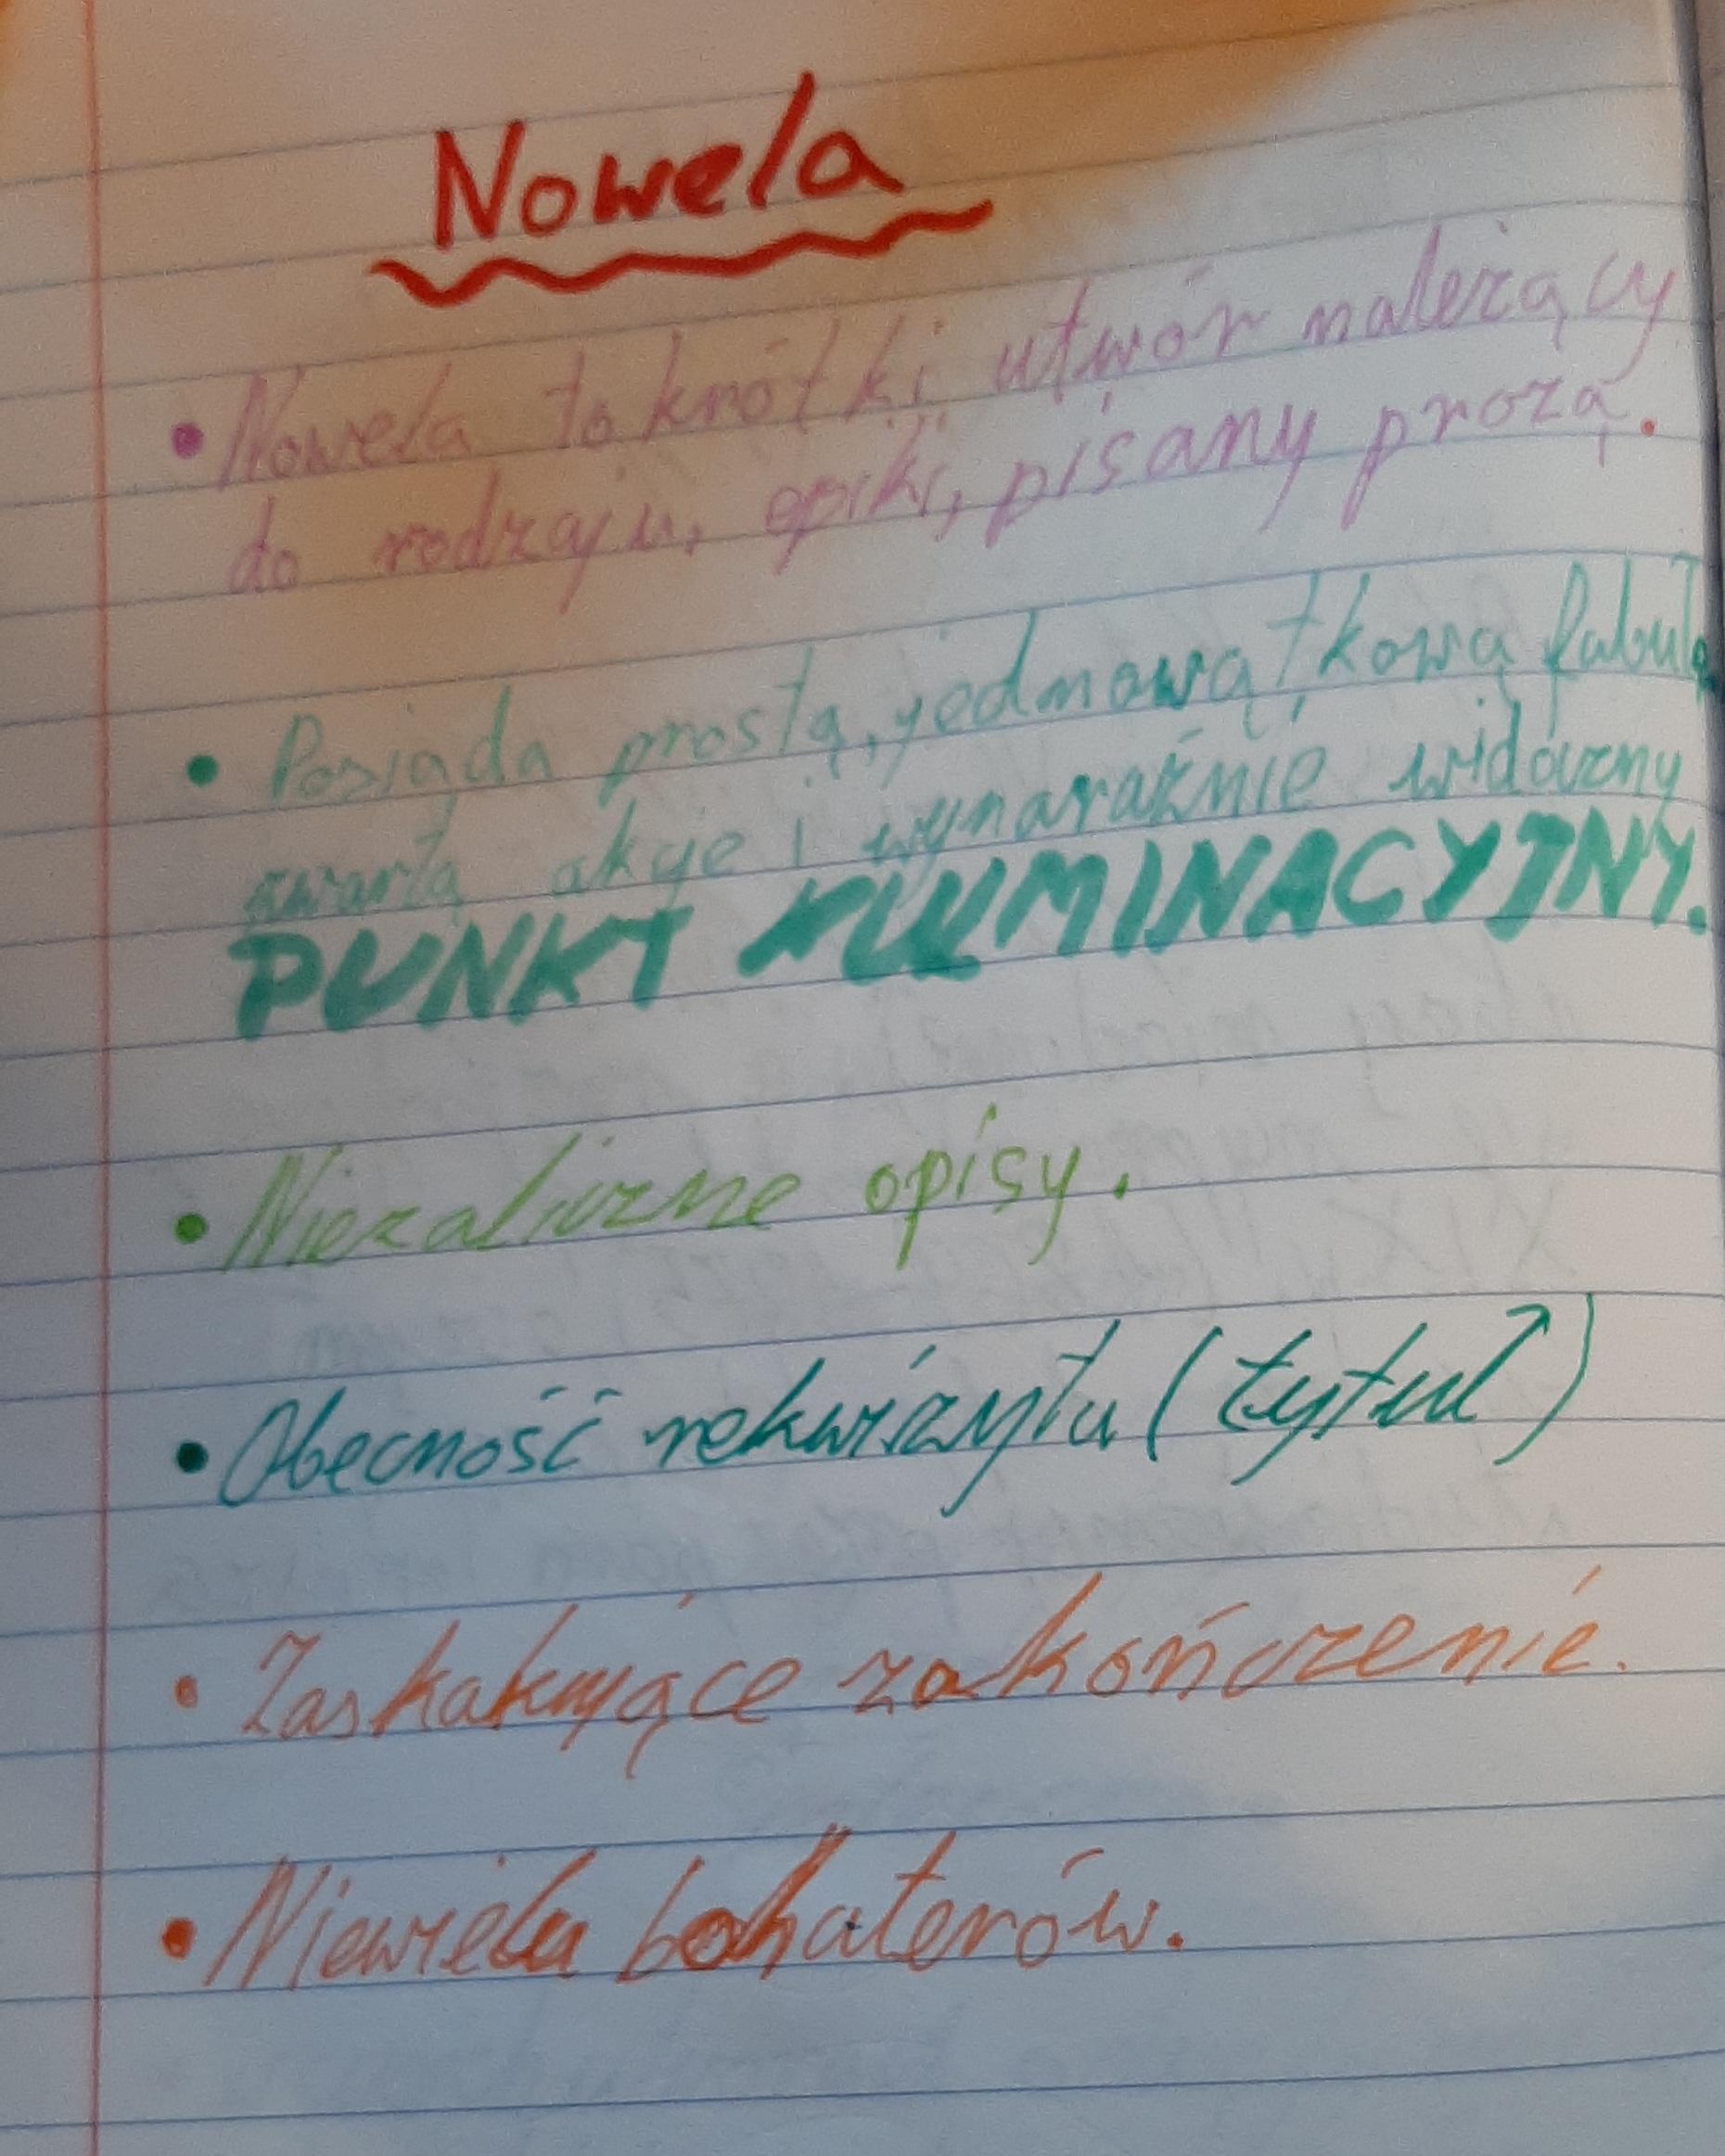 Nowela
• Nowela to krótki utwór należący
do rodzaju, epiki, pisany prozą.
• Posiada prostą, jednowątkową fabułę
zwartą akcje i wynaraźnie widoczny
PUNKT KULMINACYJNY.
• Niezaliczne opisy.
• Obecność rekwizytu (tytuł)
• Zaskakujące zakończenie.
• Niewielu bohaterów.